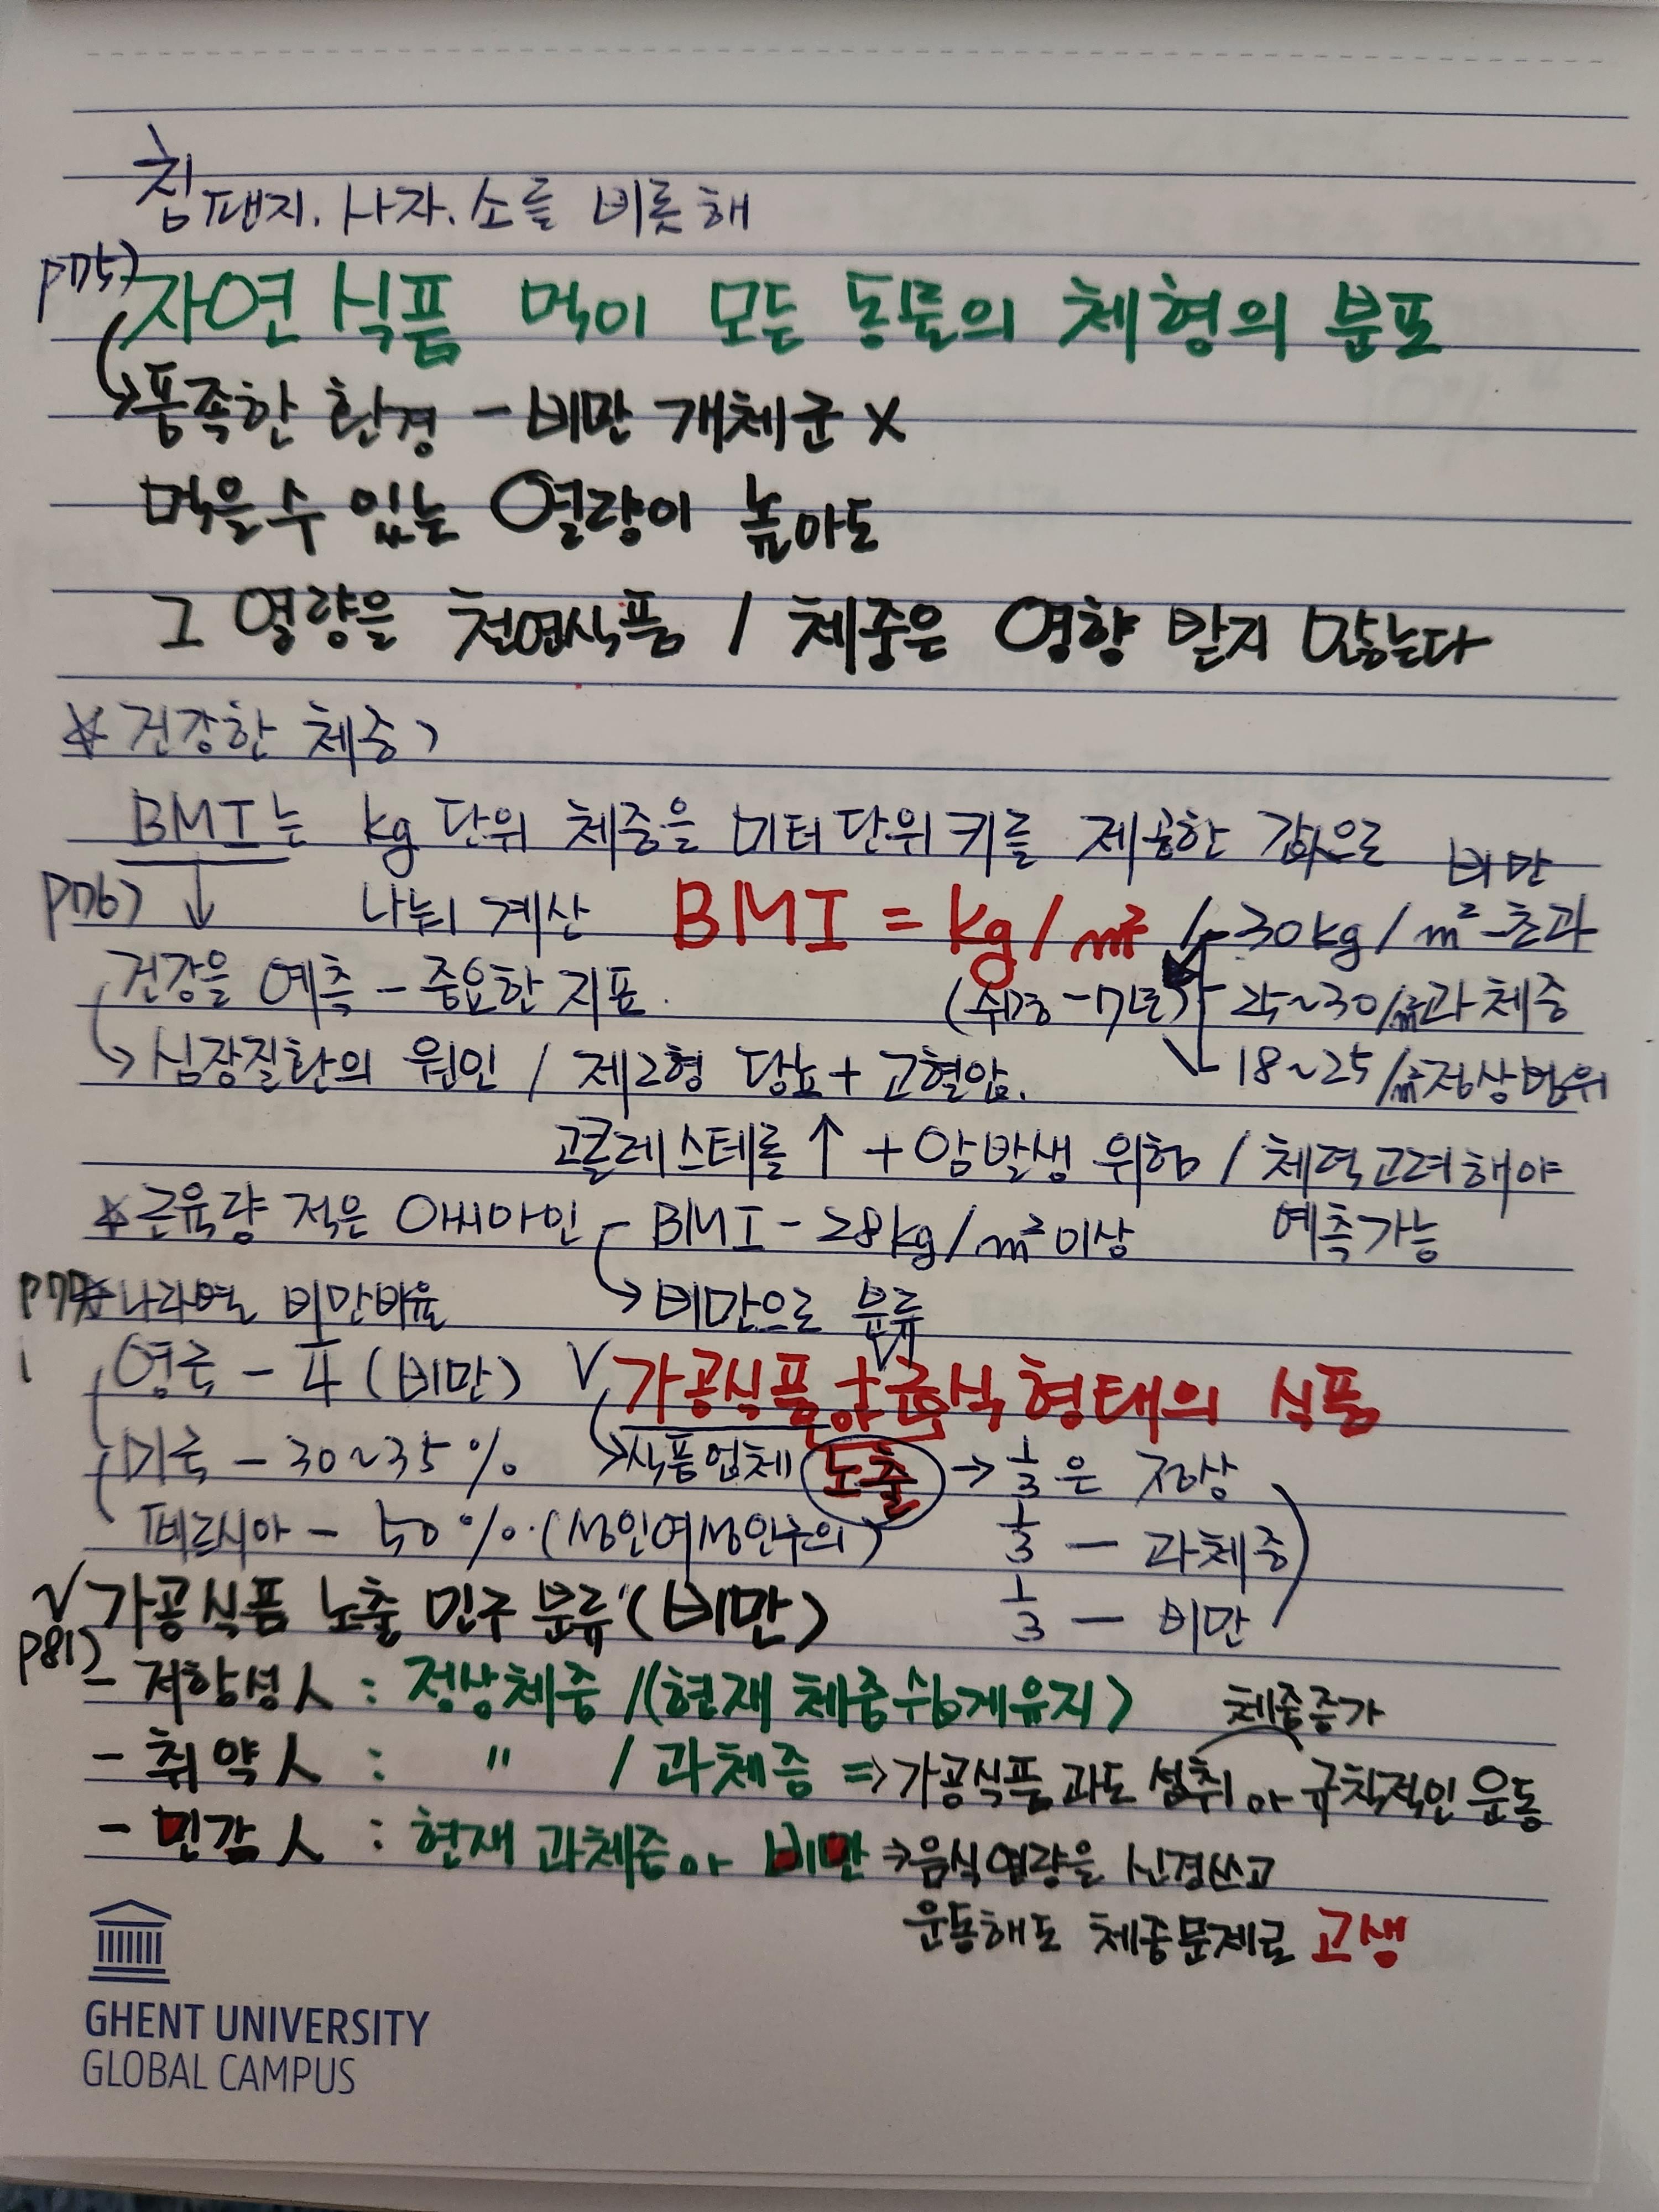 침팬지. 사자. 소를 비롯해
P75) 자연 식품 먹이 모든 동물의 체형의 분포
풍족한 환경 - 비만 개체군 X
먹을 수 있는 열량이 높아도
그 열량을 천연식품 / 체중은 영향 받지 않는다
건강한 체중>
BMI는 kg 단위 체중을 미터 단위 키를 제곱한 값으로
P76) 나눠 계산 BMI = kg/m² 비만
30kg/m² 초과
건강을 예측 - 중요한 지표.
25~30/m² 과체중
심장질환의 원인 / 제2형 당뇨 + 고혈압.
18~25/m² 정상범위
고콜레스테롤 ↑ + 암발생 위험 / 체력고려해야
예측가능
근육량 적은 아시아인 - BMI - 28kg/m² 이상
→ 비만으로 분류
나라별 비만비율
영국 - 1/4 (비만)
√ 가공식품 급식 형태의 식품
미국 - 30~35%
→ 식품업체 노출 → 1/3은 정상
페르시아 - 50%. (성인여성인구의)
1/3 - 과체중
1/3 - 비만
√ 가공식품 노출 인구 분류 (비만)
P81)
- 저항성人 : 정상체중 /(현재 체중 쉽게유지)
체중증가
- 취약人 : " / 과체중 => 가공식품 과도 섭취 or 규칙적인 운동
- 민감人 : 현재 과체중 or 비만 → 음식열량을 신경쓰고
운동해도 체중문제로 고생
GHENT UNIVERSITY
GLOBAL CAMPUS